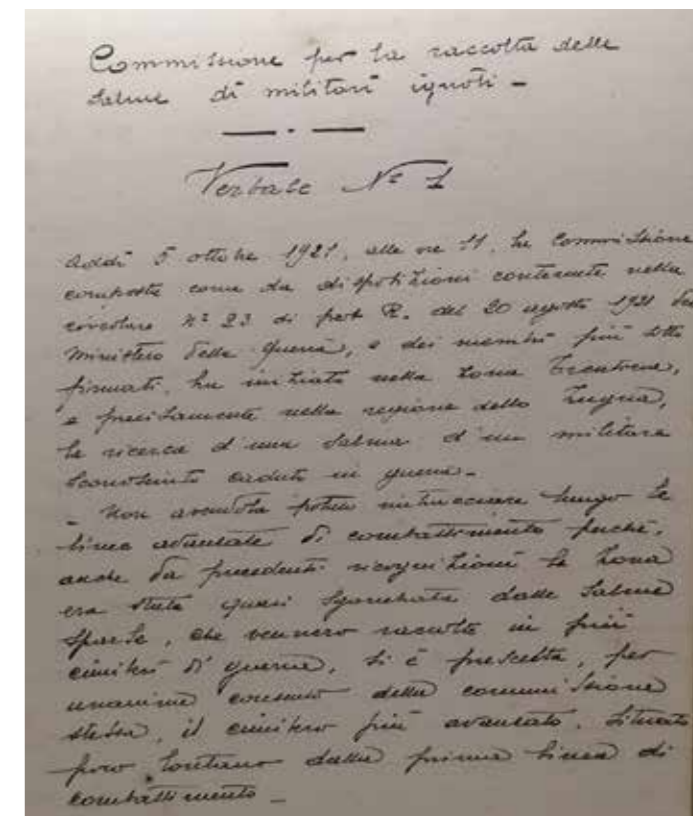 Commissione per la raccolta delle
salme di militari ignoti -
Verbale Nº 1
Addì 5 ottobre 1921, alle ore 11, la Commissione
composta come da disposizioni contenute nella
circolare nº 23 di prot R. del 20 agosto 1921 del
Ministero della guerra, e dei membri più sotto
firmati, ha iniziato nella zona Trentina,
e precisamente nella regione dello Zugna,
la ricerca d'una salma d'un militare
sconosciuto caduto in guerra. -
- Non avendola potuta rintracciare lungo le
linee avanzate di combattimento perchè,
anche da precedenti ricognizioni la zona
era stata quasi sgombrata dalle salme
sparse, che vennero raccolte in più
cimiteri di guerra, si è prescelto, per
unanime consenso della commissione
stessa, il cimitero più avanzato, situato
poco lontano dalla prima linea di
combattimento -